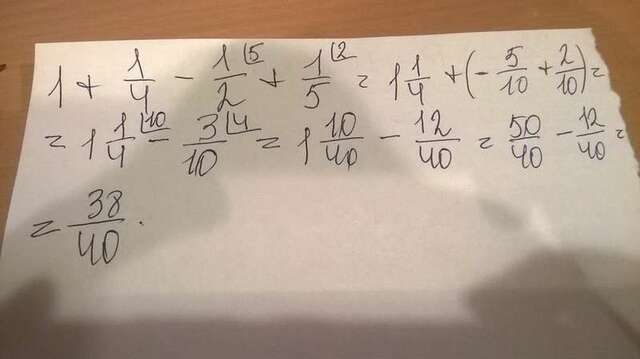 1 + 1/4 - 1/2 ⌊5 + 1/5 ⌊2 = 1 1/4 + (- 5/10 + 2/10) =
= 1 1/4 ⌊10 - 3/10 ⌊4 = 1 10/40 - 12/40 = 50/40 - 12/40 =
= 38/40 .